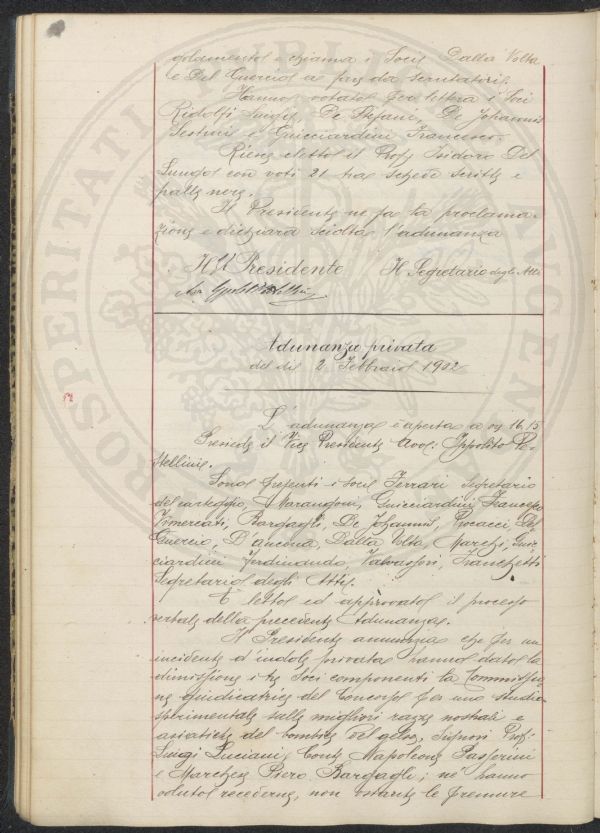 golamentol e chiama i Socii Dalla Volta
e Del Guercio a far da scrutatori.
Hanno votato per lettera i Soci
Ridolfi Luigi, De Stefani, De Johannis
Sestini e Guicciardini Francesco.
Riesce eletto il Prof Isidoro Del
Lungo con voti 21 tra schede scritte e
palle nere.
Il Presidente ne fa la proclama-
zione e dichiara sciolta l'adunanza
Il V Presidente Il Segretario degli Atti
Adunanza privata
del dì 2 Febbraio 1902
L'adunanza è aperta a ore 16,15
Presiede il Vice Presidente Avv. Ippolito Pe-
stellini.
Sono presenti i socii Ferrari Segretario
del carteggio, Marangoni, Guicciardini Francesco
Vimercati, Bargagli, De Johannis, Pucacci, Del
Guercio, D'Ancona, Dalla Volta, Marchi, Guic-
ciardini Ferdinando, Valvassori, Franchetti
Segretario degli Atti.
È letto ed approvato il processo
verbale della precedente Adunanza.
Il Presidente annunzia che per un
incidente d'indole privata hanno dato la
dimissione i tre Soci componenti la Commissio-
ne giudicatrice del Concorso per uno studio
sperimentale sulle migliori razze nostrali e
asiatiche del bombice del gelso, Signori Prof.
Luigi Luciani, Conte Napoleone Passerini
e Marchese Piero Bargagli; nè hanno
voluto recedere, non ostante le premure
PROSPERITATI PUBLICAE AUGENDAE